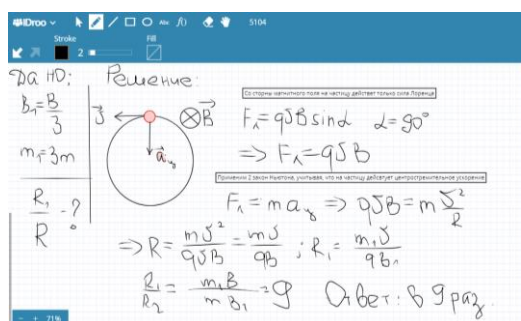 IDroo
Abc
f()
5104
Stroke
2
Fill
Дано:
Решение:
B₁ = B/3
m₁ = 3m
R₁/R - ?
𝜗
B
a ц
Со стороны магнитного поля на частицу действует только сила Лоренца
Fл = q𝜗B sinα α = 90°
=> Fл = q𝜗B
Применим 2 закон Ньютона, учитывая, что на частицу действует центростремительное ускорение
Fл = m aц => q𝜗B = m 𝜗²/R
=> R = m𝜗²/q𝜗B = m𝜗/qB ; R₁ = m₁𝜗/qB₁
R₁/R₂ = m₁B/mB₁ = 9 Ответ: в 9 раз.
- + 71%